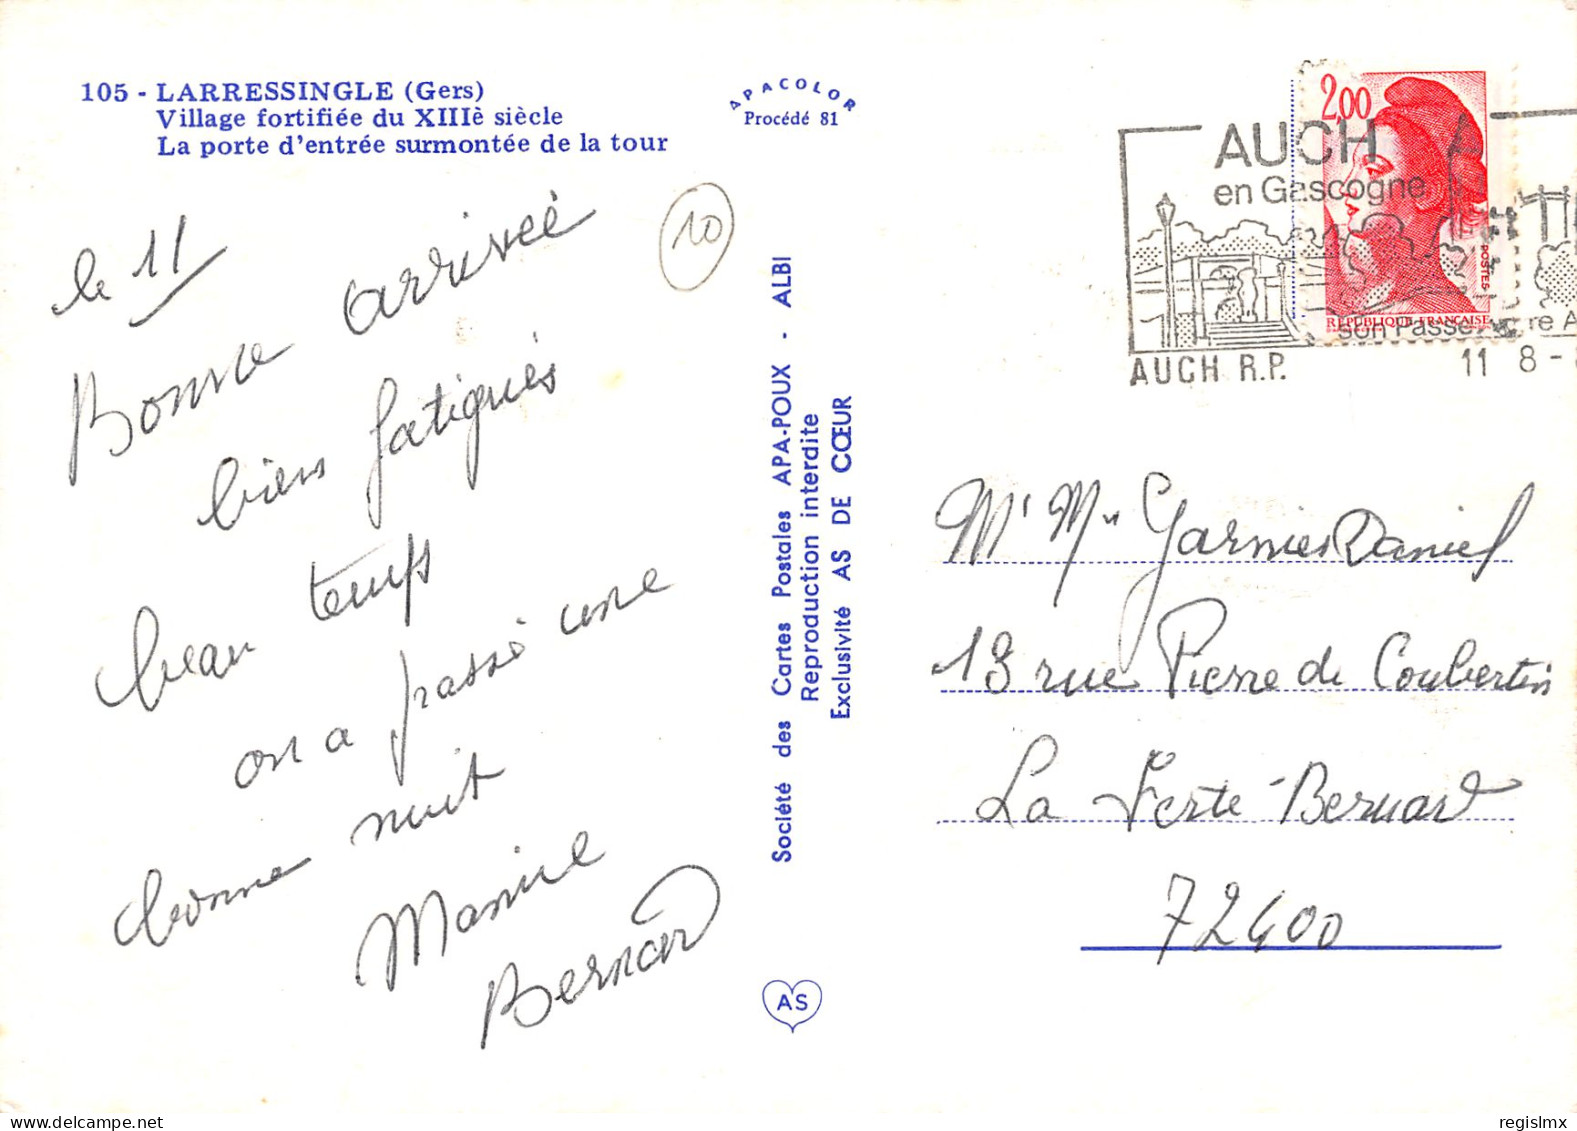 105 - LARRESSINGLE (Gers)
Village fortifiée du XIIIè siècle
La porte d'entrée surmontée de la tour
APACOLOR
Procédé 81
le 11
Bonne arrivée
bien fatigués
beau temps
on a passé une
bonne nuit
Bernard
10
Société des Cartes Postales APA-POUX - ALBI
Reproduction interdite
Exclusivité AS DE CŒUR
AS
2,00
POSTES
REPUBLIQUE FRANÇAISE
AUCH
en Gascogne
son Passé
AUCH R.P.
11 8 -
Garnier Daniel
13 rue Pierre de Coubertin
La Ferte-Bernard
72400
regislmx